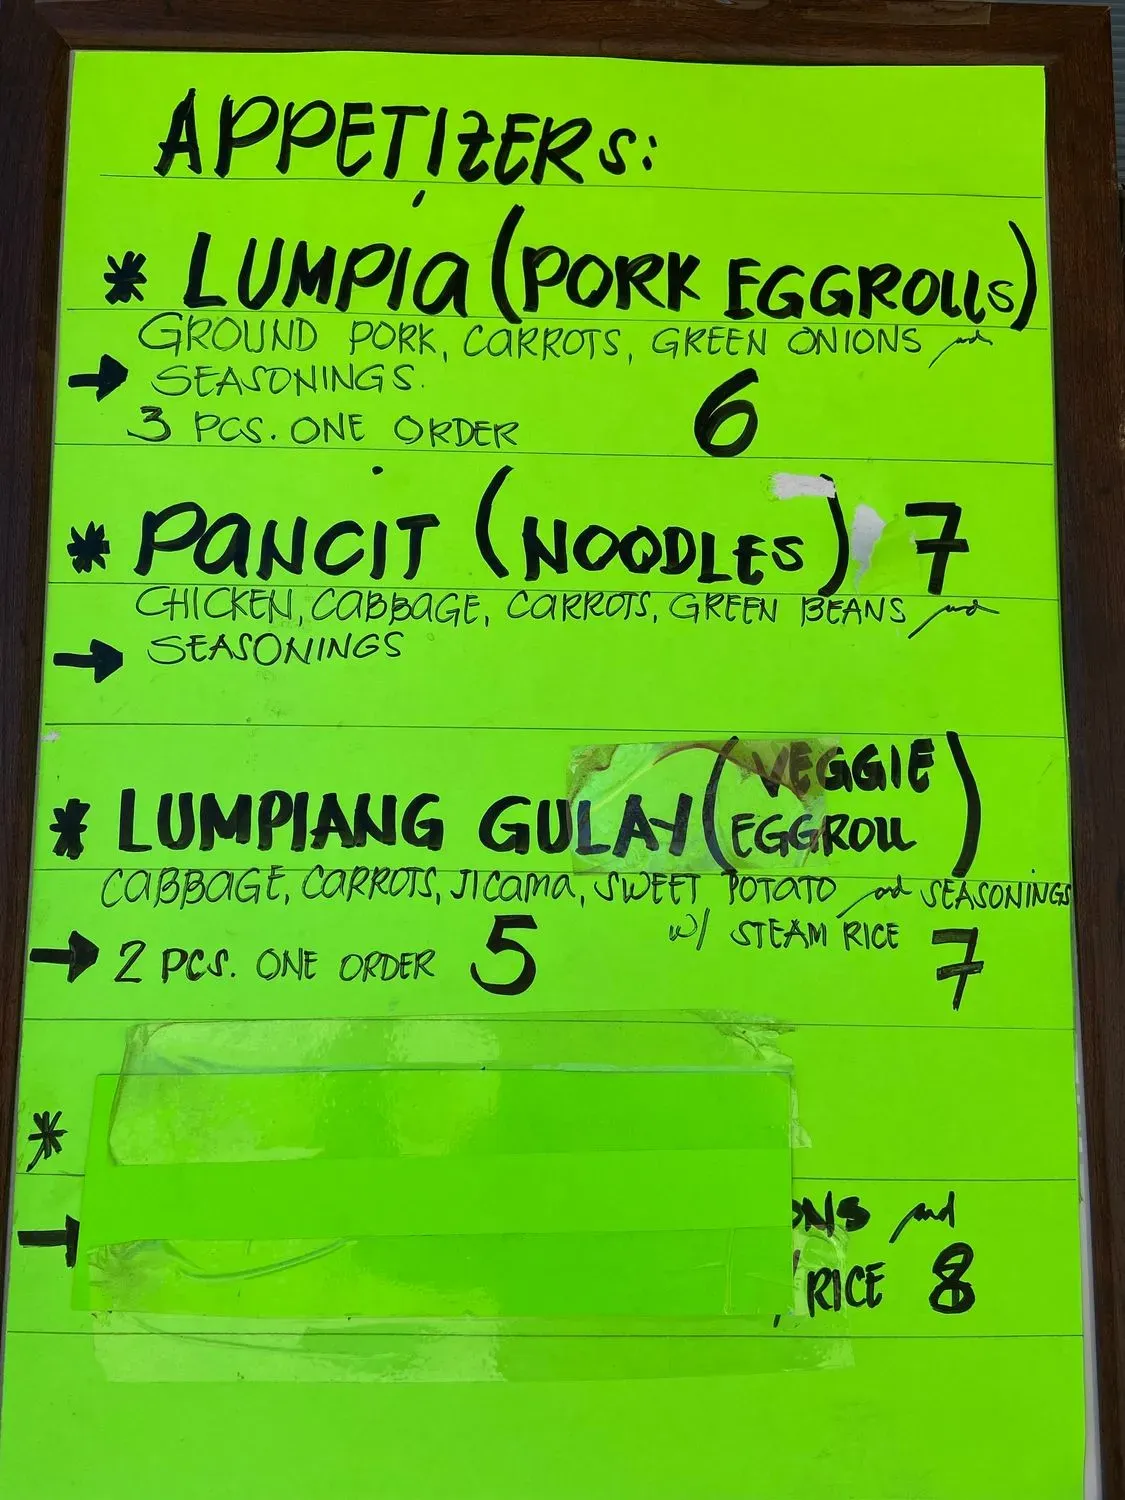 APPETIZERS:
* LUMPIA (PORK EGGROLLS)
GROUND PORK, CARROTS, GREEN ONIONS and
→ SEASONINGS.
3 PCS. ONE ORDER 6
* PANCIT (NOODLES) 7
CHICKEN, CABBAGE, CARROTS, GREEN BEANS and
→ SEASONINGS
* LUMPIANG GULAY (VEGGIE
EGGROLL)
CABBAGE, CARROTS, JICAMA, SWEET POTATO and SEASONINGS
w/ STEAM RICE 7
→ 2 PCS. ONE ORDER 5
*
and
/RICE 8